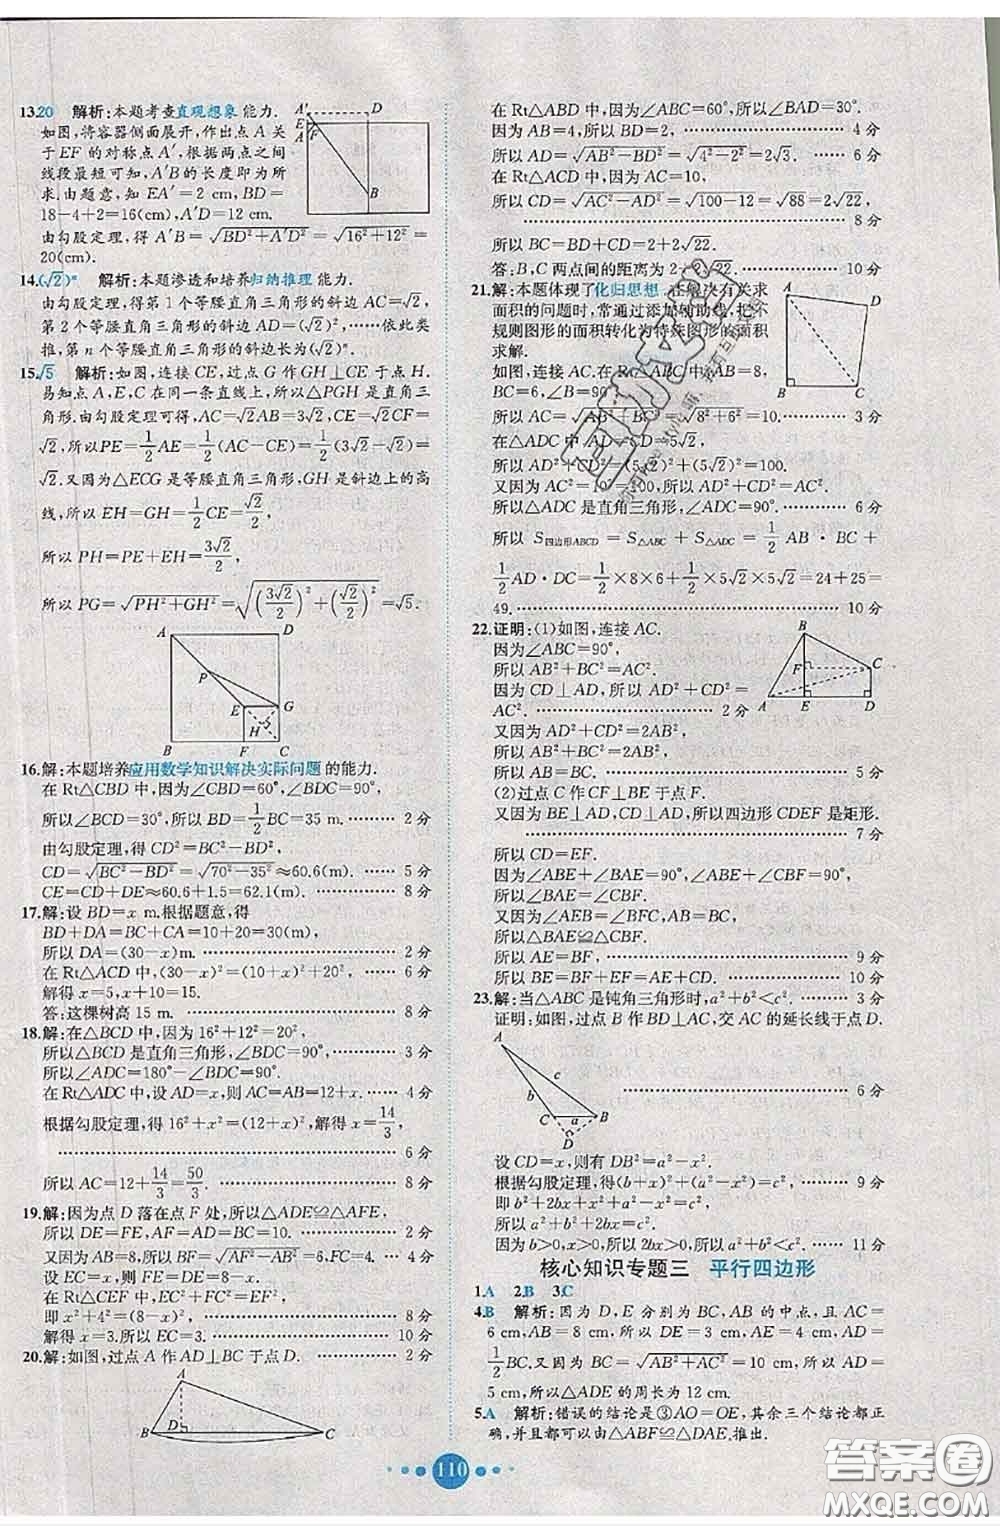 13.20 解析:本题考查直观想象能力.
如图,将容器侧面展开,作出点 A 关
于 EF 的对称点 A′,根据两点之间
线段最短可知,A′B 的长度即为所
求.由题意,知 EA′=2 cm,BD=
18-4+2=16(cm),A′D=12 cm.
由勾股定理,得 A′B=√(BD²+A′D²)=√(16²+12²)=
20(cm).
A′ D
E F
A
B
14.(√2)ⁿ 解析:本题渗透和培养归纳推理能力.
由勾股定理,得第 1 个等腰直角三角形的斜边 AC=√2,
第 2 个等腰直角三角形的斜边 AD=(√2)²,……依此类
推,第 n 个等腰直角三角形的斜边长为(√2)ⁿ.
15.√5 解析:如图,连接 CE,过点 G 作 GH⊥CE 于点 H.
易知点 A,E,C 在同一条直线上,所以△PGH 是直角三角
形.由勾股定理可得,AC=√2AB=3√2,CE=√2CF=
√2.所以PE=1/2AE=1/2(AC-CE)=1/2(3√2-√2)=
√2.又因为△ECG 是等腰直角三角形,GH 是斜边上的高
线,所以 EH=GH=1/2CE=√2/2,
所以 PH=PE+EH=3√2/2,
所以 PG=√(PH²+GH²)=√((3√2/2)²+(√2/2)²)=√5.
A D
P
E G
H
B F C
16.解:本题培养应用数学知识解决实际问题的能力.
在 Rt△CBD 中,因为∠CBD=60°,∠BDC=90°,
所以∠BCD=30°,所以 BD=1/2BC=35 m. ………… 2 分
由勾股定理,得 CD²=BC²-BD²,
CD=√(BC²-BD²)=√(70²-35²)≈60.6(m). …… 5 分
CE=CD+DE≈60.6+1.5=62.1(m). ………… 8 分
17.解:设 BD=x m.根据题意,得
BD+DA=BC+CA=10+20=30(m),
所以 DA=(30-x)m. ………… 2 分
在 Rt△ACD 中,(30-x)²=(10+x)²+20², …… 6 分
解得 x=5,x+10=15.
答:这棵树高 15 m. ………… 8 分
18.解:在△BCD 中,因为 16²+12²=20²,
所以△BCD 是直角三角形,∠BDC=90°, ………… 3 分
所以∠ADC=180°-∠BDC=90°.
在 Rt△ADC 中,设 AD=x,则 AC=AB=12+x, …… 4 分
根据勾股定理,得 16²+x²=(12+x)²,解得 x=14/3,
………… 6 分
所以 AC=12+14/3=50/3. ………… 8 分
19.解:因为点 D 落在点 F 处,所以△ADE≌△AFE,
所以 DE=FE,AF=AD=BC=10. ………… 2 分
又因为 AB=8,所以 BF=√(AF²-AB²)=6,FC=4. …… 4 分
设 EC=x,则 DE=EF=8-x.
在 Rt△CEF 中,EC²+FC²=EF²,
即 x²+4²=(8-x)², ………… 8 分
解得 x=3.所以 EC=3. ………… 10 分
20.解:如图,过点 A 作 AD⊥BC 于点 D. ………… 2 分
A
B D C
在 Rt△ABD 中,因为∠ABC=60°,所以∠BAD=30°.
因为 AB=4,所以 BD=2. ………… 4 分
所以 AD=√(AB²-BD²)=√(4²-2²)=2√3. …… 6 分
在 Rt△ACD 中,因为 AC=10,
所以 CD=√(AC²-AD²)=√(100-12)=√88=2√22,
………… 8 分
所以 BC=BD+CD=2+2√22.
答:B,C 两点间的距离为 2+2√22. ………… 10 分
21.解:本题体现了化归思想.在解决有关求
面积的问题时,常通过添加辅助线,把不
规则图形的面积转化为特殊图形的面积
求解.
如图,连接 AC.在 Rt△ABC 中,AB=8,
BC=6,∠B=90°,
所以 AC=√(AB²+BC²)=√(8²+6²)=10. ………… 3 分
在△ADC 中,AD=CD=5√2,
所以 AD²+CD²=(5√2)²+(5√2)²=100.
又因为 AC²=10²=100,所以 AD²+CD²=AC².
所以△ADC 是直角三角形,∠ADC=90°. ………… 6 分
所以 S四边形ABCD = S△ABC + S△ADC = 1/2 AB·BC +
1/2AD·DC=1/2×8×6+1/2×5√2×5√2=24+25=
49. ………… 10 分
A D
B C
22.证明:(1)如图,连接 AC.
因为∠ABC=90°,
所以 AB²+BC²=AC².
因为 CD⊥AD,所以 AD²+CD²=
AC². ………… 2 分
又因为 AD²+CD²=2AB²,
所以 AB²+BC²=2AB²,
所以 AB=BC. ………… 5 分
(2)过点 C 作 CF⊥BE 于点 F.
又因为 BE⊥AD,CD⊥AD,所以四边形 CDEF 是矩形.
………… 7 分
所以 CD=EF.
因为∠ABE+∠BAE=90°,∠ABE+∠CBF=90°,
所以∠BAE=∠CBF.
又因为∠AEB=∠BFC,AB=BC,
所以△BAE≌△CBF.
所以 AE=BF, ………… 9 分
所以 BE=BF+EF=AE+CD. ………… 10 分
B
F C
A E D
23.解:当△ABC 是钝角三角形时,a²+b²<c². ………… 3 分
证明:如图,过点 B 作 BD⊥AC,交 AC 的延长线于点 D.
………… 6 分
A
c
b
C a B
D
设 CD=x,则有 DB²=a²-x².
根据勾股定理,得(b+x)²+(a²-x²)=c², ………… 9 分
即 b²+2bx+x²+a²-x²=c².
所以 a²+b²+2bx=c².
因为 b>0,x>0,所以 2bx>0,所以 a²+b²<c². …… 11 分
核心知识专题三 平行四边形
1.A 2.B 3.C
4.B 解析:因为 D,E 分别为 BC,AB 的中点,且 AC=
6 cm,AB=8 cm,所以 DE=3 cm,AE=4 cm,AD=
1/2BC.又因为 BC=√(AB²+AC²)=10 cm,所以 AD=
5 cm,所以△ADE 的周长为 12 cm.
5.A 解析:错误的结论是③AO=OE,其余三个结论都正
确,并且都可以由△ABF≌△DAE推出.
110
答案圈
MXQE.COM